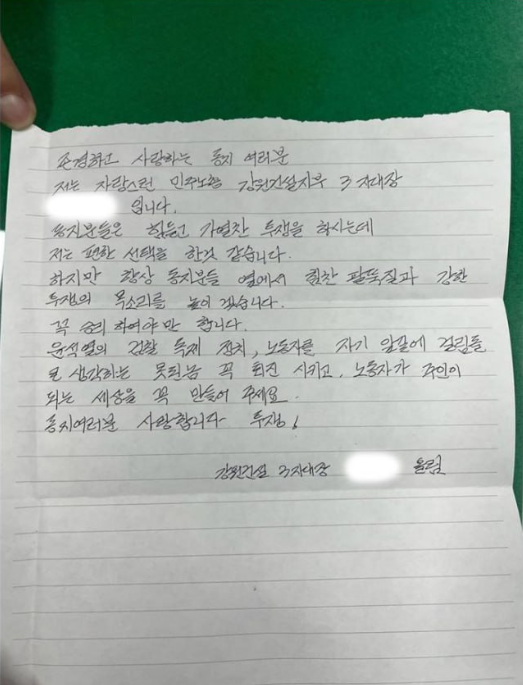 존경하고 사랑하는 동지 여러분
저는 자랑스런 민주노총 강원건설지부 3지대장
입니다.
동지분들은 힘들고 가열찬 투쟁을 하시는데
저는 편한 선택을 한것 같습니다.
하지만 항상 동지분들 옆에서 힘찬 팔뚝질과 강한
투쟁의 목소리를 높이 겠습니다.
꼭 승리 하여야만 합니다.
윤석열의 검찰 독재 정치, 노동자를 자기 앞길에 걸림돌
로 생각하는 못된놈 꼭 퇴진 시키고, 노동자가 주인이
되는 세상을 꼭 만들어 주세요.
동지여러분 사랑합니다 투쟁!
강원건설 3지대장 올림